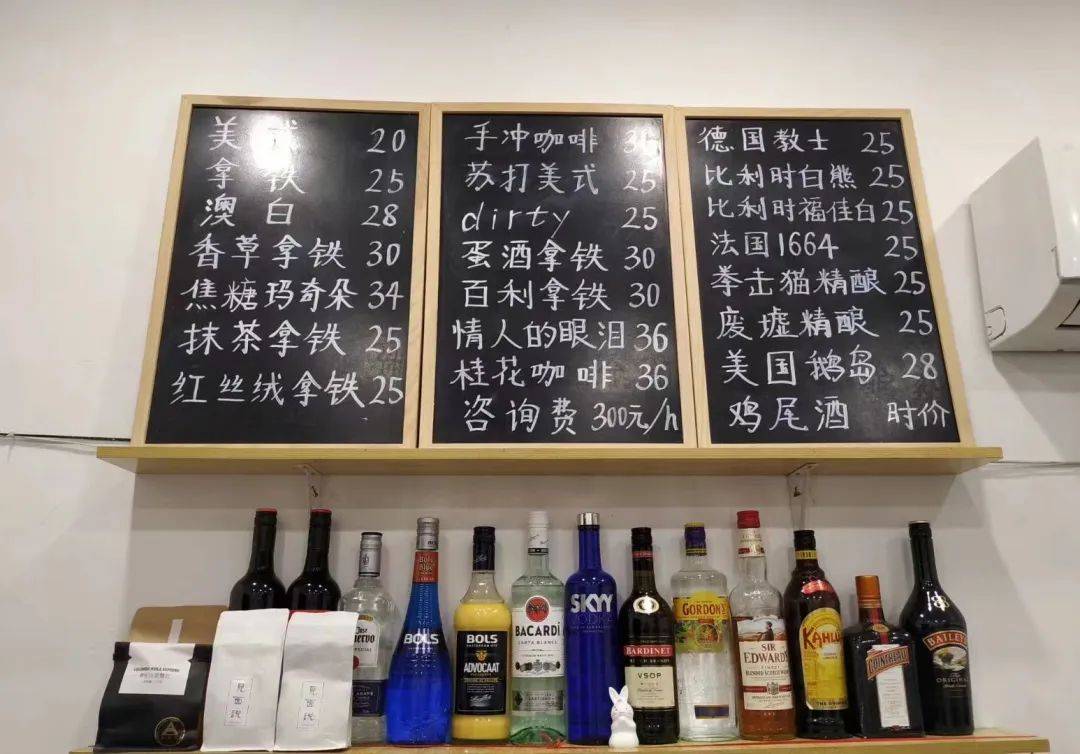 美式 20
拿铁 25
澳白 28
香草拿铁 30
焦糖玛奇朵 34
抹茶拿铁 25
红丝绒拿铁 25
手冲咖啡
苏打美式 25
dirty 25
蛋酒拿铁 30
百利拿铁 30
情人的眼泪 36
桂花咖啡 36
咨询费 300元/h
德国教士 25
比利时白熊 25
比利时福佳白 25
法国1664 25
拳击猫精酿 25
废墟精酿 25
美国鹅岛 28
鸡尾酒 时价
見面説
見面説
BOLS
BOLS
ADVOCAAT
BACARDÍ
CARTA BLANCA
SKYY
VODKA
BARDINET
VSOP
GORDON'S
SIR
EDWARD'S
KAHLÚA
COINTREAU
BAILEYS
The
ORIGINAL